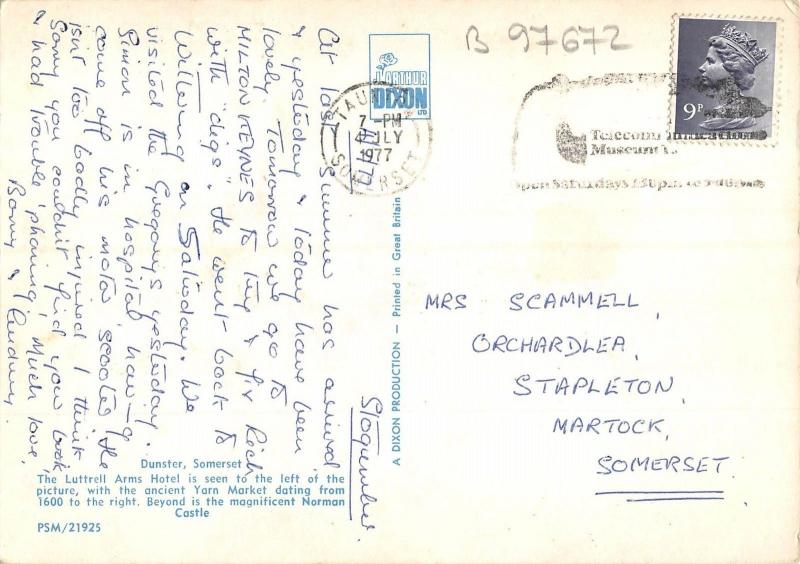 B 97672
J. ARTHUR
DIXON
LTD
TAUNTON
7- PM
4 JLY
1977
SOMERSET
9P
Telecommunications
Museum
Open Saturdays 1.30pm to
Stogumber
At last Summer has arrived,
& yesterday & today have been
lovely. Tomorrow we go to
MILTON KEYNES to try & fix Rich
with "digs". He went back to
on Saturday. We
visited the Gregorys yesterday.
Simon is in hospital, having
come off his motor scooter. He
isn't too badly injured I think.
Sorry you couldn't find your book
& had trouble 'phoning. Much love,
Barry &
A DIXON PRODUCTION — Printed in Great Britain
MRS SCAMMELL,
ORCHARDLEA,
STAPLETON,
MARTOCK,
SOMERSET.
Dunster, Somerset
The Luttrell Arms Hotel is seen to the left of the
picture, with the ancient Yarn Market dating from
1600 to the right. Beyond is the magnificent Norman
Castle
PSM/21925